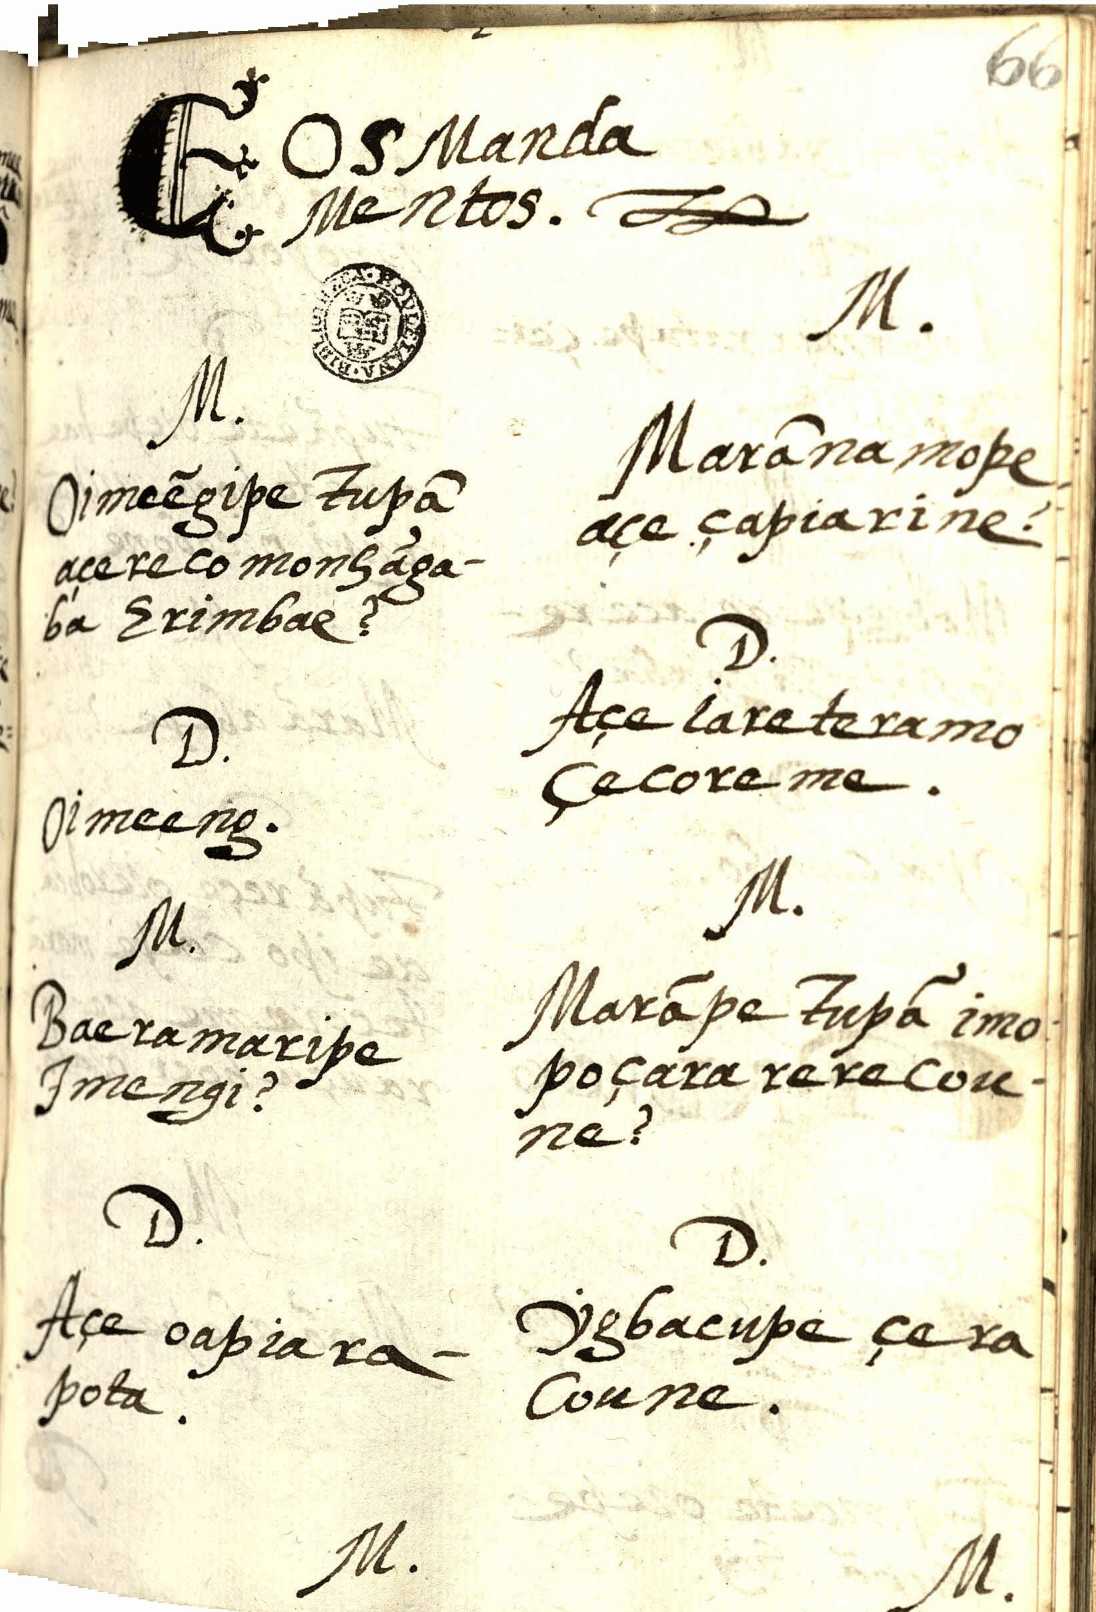 66
E OS Manda
Mentos.
M.
Oimeẽgipe Tupã
açereco monhãga-
ba Erimbae?
D.
Oimeeng.
M.
Baeramaripe
Imengi?
D.
Açe oapiara-
pota.
M.
M.
Marãnamope
açe çapiarine?
D.
Açe iareteramo
Çecoreme.
M.
Marãpe Tupã imo
poçara rerecou-
ne?
D.
Ÿgbacupe çera
Coune.
M.